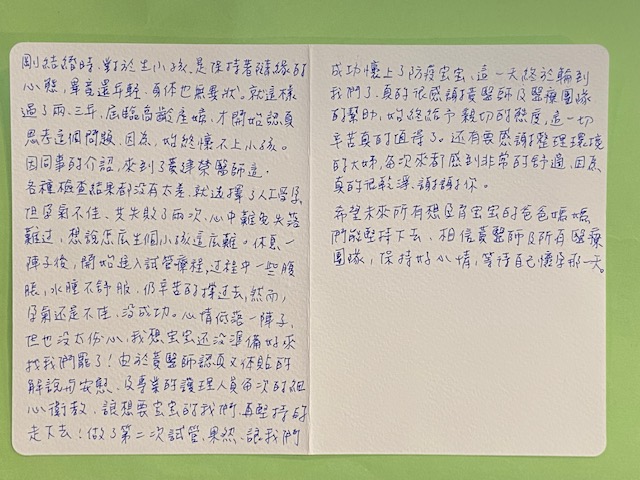 剛結婚時，對於生小孩，是保持著隨緣的
心態，畢竟還年輕，身体也無要狀。就這樣
過了兩、三年，底臨高齡產婦，才開始認真
思考這個問題，因為，始終懷不上小孩。
因同事的介紹，來到了黃建榮醫師這，
各種檢查結果都沒有太差，就選擇了人工受孕，
但孕氣不佳，共失敗了兩次，心中難免失落
難過，想說怎麼生個小孩這麼難。休息一
陣子後，開始進入試管療程，過程中一些腹
脹，水腫不舒服，仍辛苦的撐過去，然而，
孕氣還是不佳，沒成功。心情低落一陣子，
但也沒太份心，我想寶寶还沒準備好來
找我們罷了！由於黃醫師認真又体貼的
解說与安慰，及專業的護理人員每次的細
心衛教，讓想要寶寶的我們，再堅持的
走下去！做了第二次試管，果然，讓我們
成功懷上了防疫寶寶，這一天終於輪到
我們了，真的很感謝黃醫師及醫療團隊
的幫助，始終給予親切的態度，這一切
辛苦真的值得了。还有要感謝整理環境
的大姊，每次來都感到非常的舒適，因為
真的很乾淨，謝謝你。
希望未來所有想孕育寶寶的爸爸媽媽
們能堅持下去，相信黃醫師及所有醫療
團隊，保持好心情，等待自己懷孕那一天。